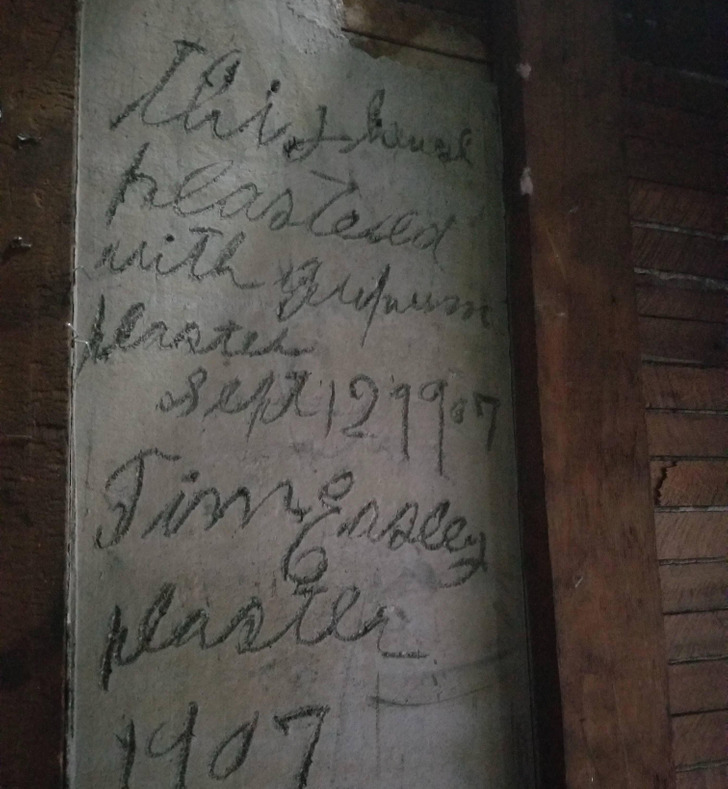 This house
plastered
with gypsum
plaster
Sept 12 1907
Tim Ensley
plaster
1907